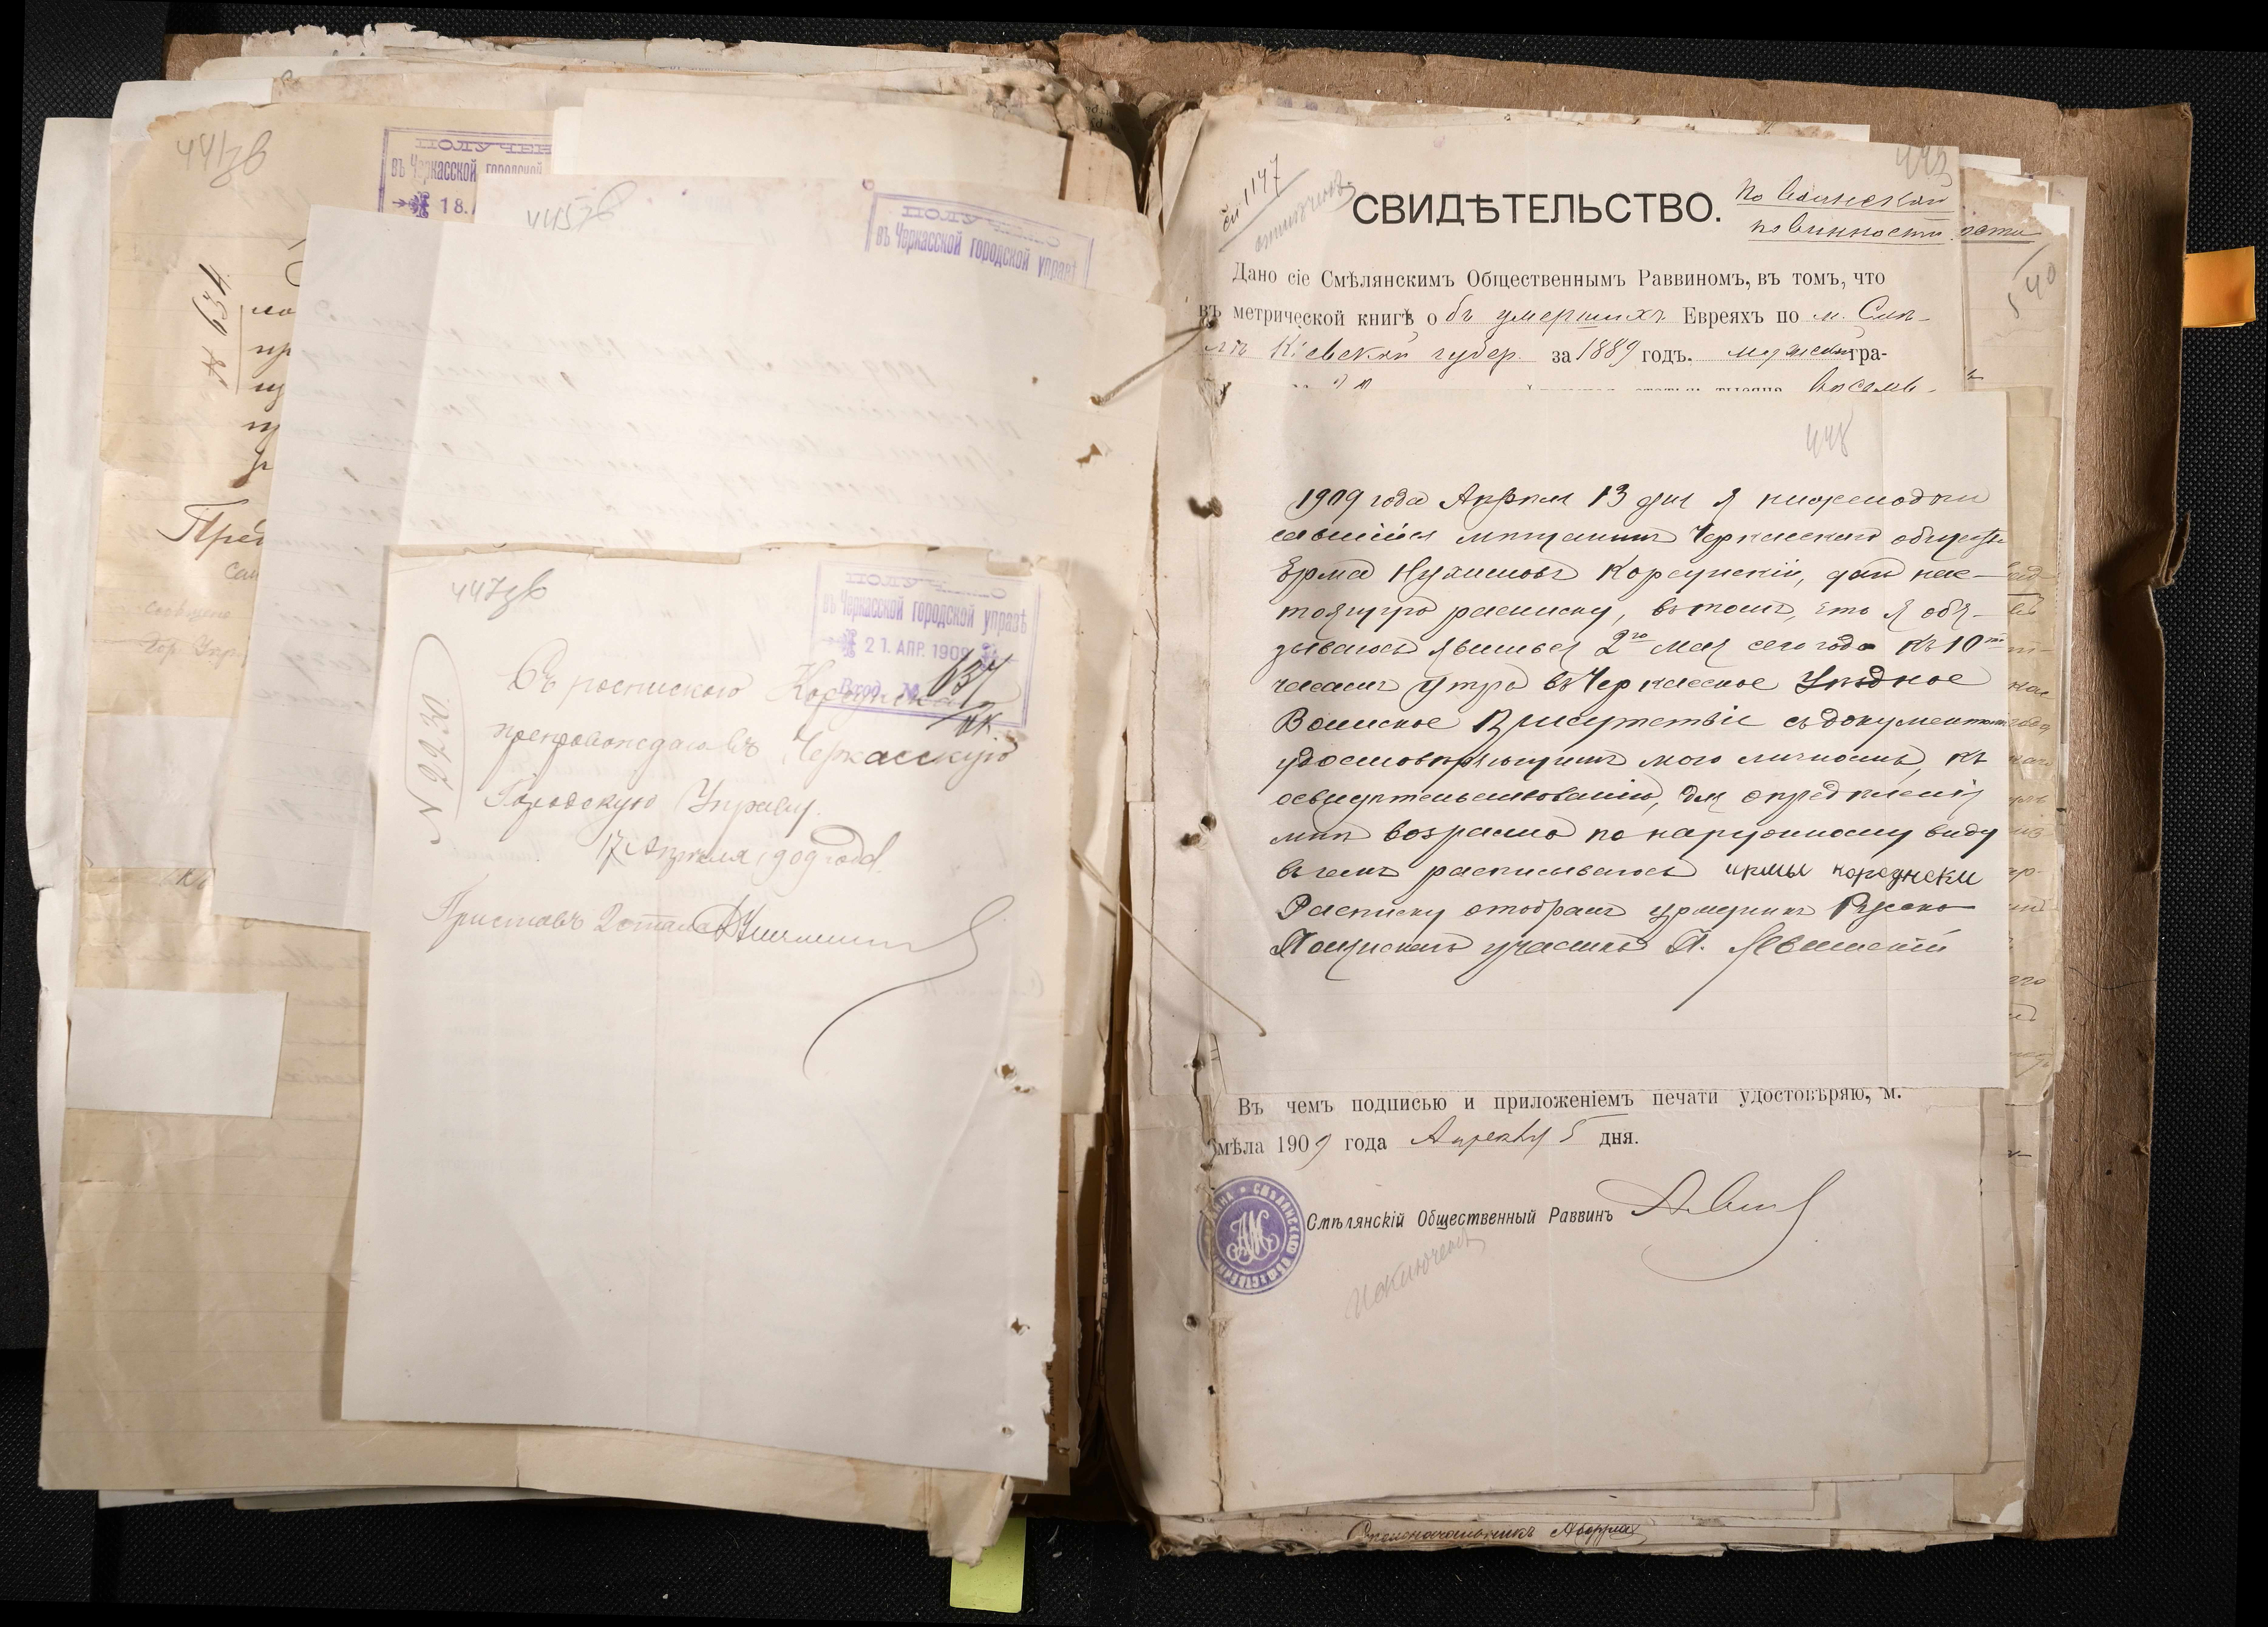 441 зв
ПОЛУЧЕН
въ Черкасской городской
18.
№ 634
Пред
сообщено
Гор. Упр.
445 зв
ПОЛУЧ
въ Черкасской городской управѣ
447 зв
ПОЛУЧЕН
въ Черкасской городской управѣ
21. АПР. 1909
Вход. № 637
№ 2230
Съ роспискою Корсунска
препровождаю въ Черкасскую
Городскую Управу.
17 Апрѣля 1909 года
Приставъ 2 стана
443
№ 1147
СВИДѢТЕЛЬСТВО.
по воинской
повинности
540
Дано сіе Смѣлянскимъ Общественнымъ Раввиномъ, въ томъ, что
въ метрической книгѣ объ умершихъ Евреяхъ по м. Смѣ-
лѣ Кіевской губер. за 1889 годъ. мужской гра-
статьи тысяча восемь-
448
1909 года Апрѣля 13 дня я нижеподпи
савшійся мѣщанинъ Черкасскаго общества
Ерма Нухимовъ Корсунскій, далъ нас-
тоящую расписку, въ томъ, что я обя-
зываюсь явиться 2го мая сего года къ 10ти
часамъ утра въ Черкасское Уѣздное
Воинское Присутствіе съ документами
удостовѣряющими мою личность, къ
освидѣтельствованію, для опредѣленія
мнѣ возраста по наружному виду
въ чемъ расписываюсь ирмы корсунски
Расписку отобралъ урядникъ Русско
Полянскаго участка П. Левинскій
Въ чемъ подписью и приложеніемъ печати удостовѣряю, м.
Смѣла 1909 года Апрѣля 5 дня.
Смѣлянскій Общественный Раввинъ
исключенъ